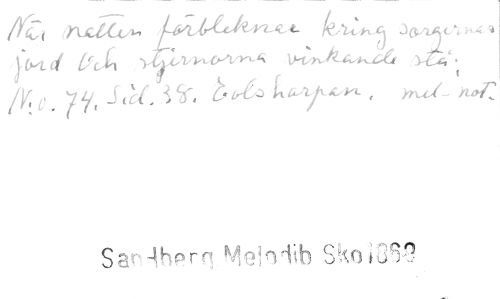 När natten förbleknar kring sorgernas
jord och stjernorna vinkande stå;
N:o. 74. Sid. 38. Eolsharpan. mel-not.
Sandberg Melodib Sko 1868